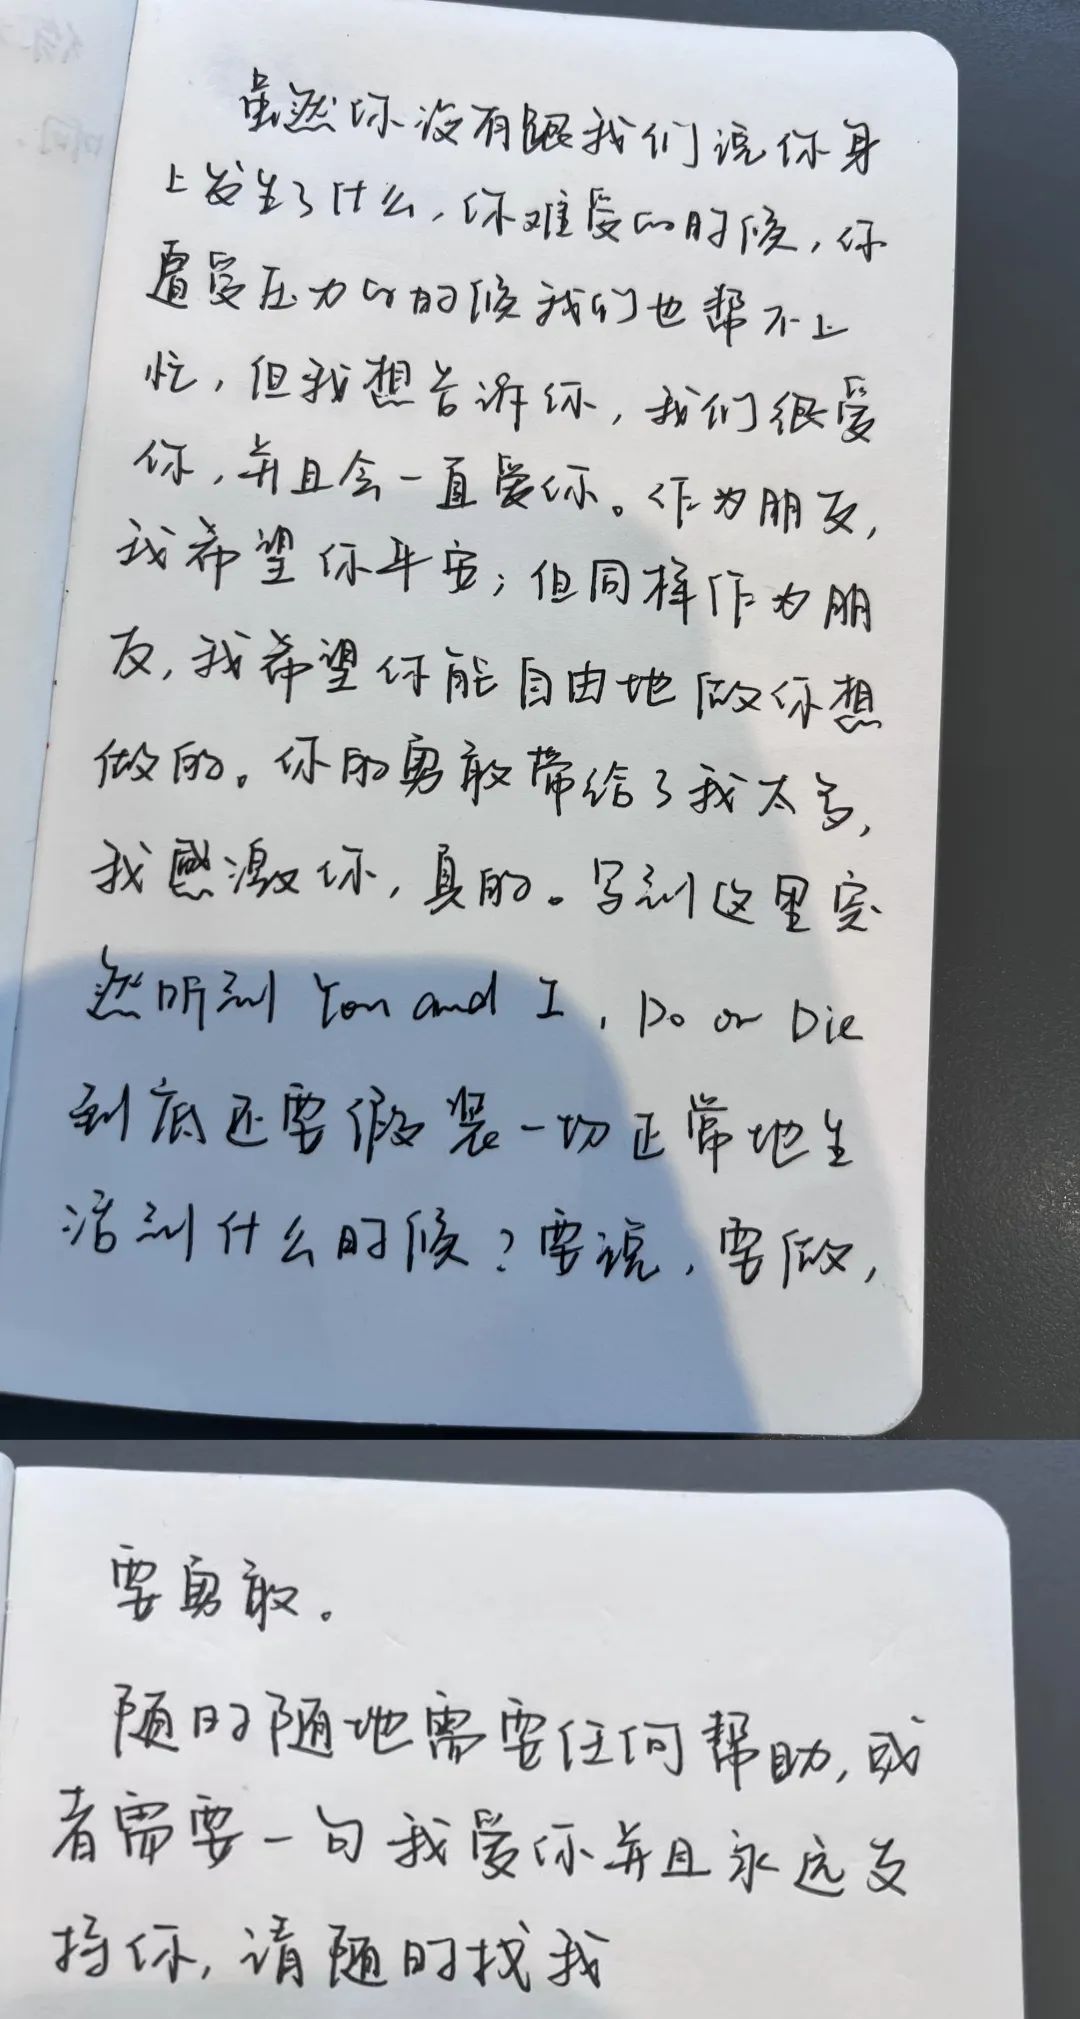 虽然你没有跟我们说你身
上发生了什么，你难受的时候，你
遭受压力的时候我们也帮不上
忙，但我想告诉你，我们很爱
你，并且会一直爱你。作为朋友，
我希望你平安；但同样作为朋
友，我希望你能自由地做你想
做的。你的勇敢带给了我太多，
我感激你，真的。写到这里突
然听到 You and I , Do or Die
到底还要假装一切正常地生
活到什么时候？要说，要做，
要勇敢。
随时随地需要任何帮助，或
者需要一句我爱你并且永远支
持你，请随时找我